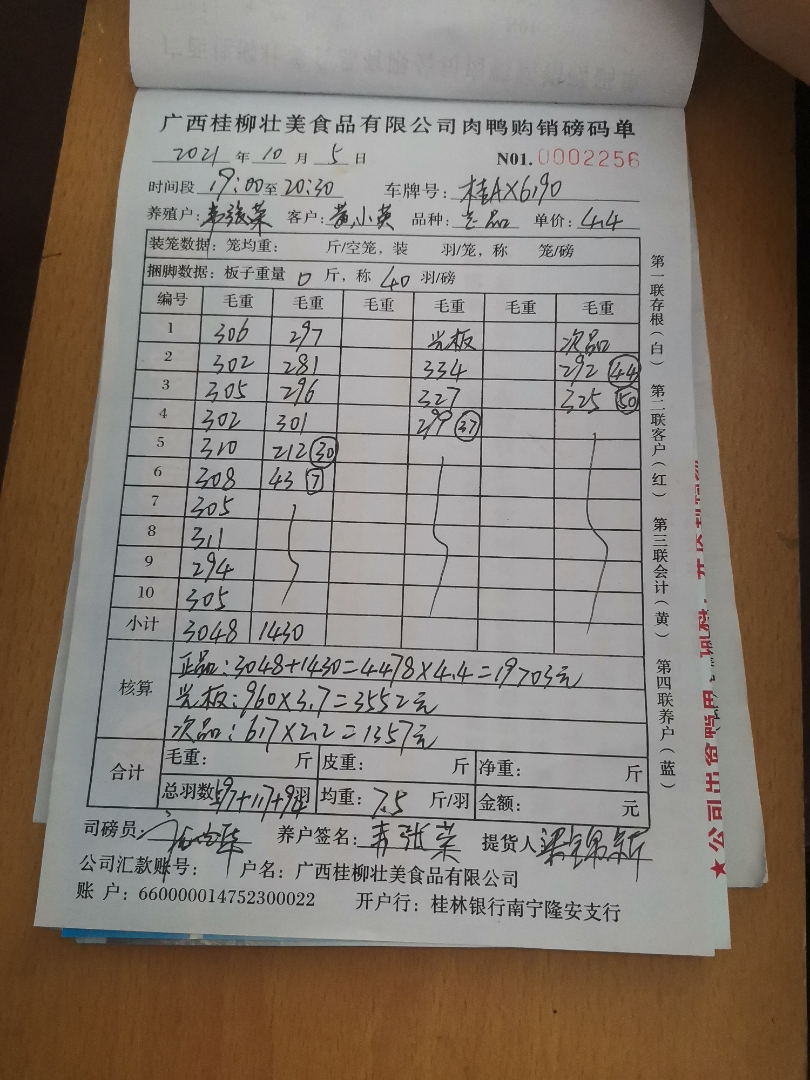 广西桂柳壮美食品有限公司肉鸭购销磅码单
2021 年 10 月 5 日 N01. 0002256
时间段 19:00至20:30 车牌号: 桂AX6190
养殖户: 韦张荣 客户: 黄小英 品种: 正品 单价: 4.4
装笼数据: 笼均重: 斤/空笼, 装 羽/笼, 称 笼/磅
捆脚数据: 板子重量 0 斤, 称 40 羽/磅
编号 毛重 毛重 毛重 毛重 毛重 毛重
1 306 297 光板 次品
2 302 281 334 292 44
3 305 296 327 325 50
4 302 301 299 37
5 310 212 30
6 308 43 7
7 305
8 311
9 294
10 305
小计 3048 1430
核算
正品: 3048+1430=4478×4.4=19703元
光板: 960×3.7=3552元
次品: 617×2.2=1357元
合计
毛重: 斤 皮重: 斤 净重: 斤
总羽数 597+117+94羽 均重: 7.5 斤/羽 金额: 元
司磅员: 养户签名: 韦张荣 提货人 梁锦新
公司汇款账号: 户名: 广西桂柳壮美食品有限公司
账 户: 660000014752300022 开户行: 桂林银行南宁隆安支行
第一联存根(白) 第二联客户(红) 第三联会计(黄) 第四联养户(蓝)